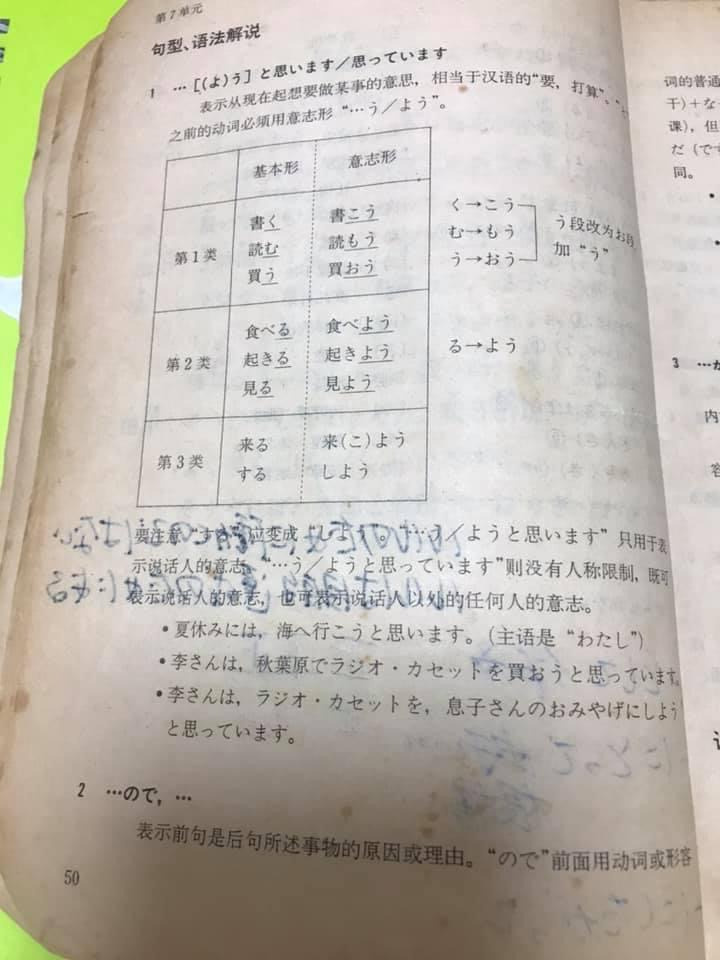 第7单元
句型、语法解说
1 …［(よ)う］と思います／思っています
表示从现在起想要做某事的意思，相当于汉语的“要，打算”。
之前的动词必须用意志形“…う／よう”。
基本形 意志形
第1类
書く 書こう
読む 読もう
買う 買おう
く→こう
む→もう
う→おう
う段改为お段
加“う”
第2类
食べる 食べよう
起きる 起きよう
見る 見よう
る→よう
第3类
来る 来(こ)よう
する しよう
要注意 变成 “…う／ようと思います”只用于表
示说话人的意志，“…う／ようと思っています”则没有人称限制，既可
表示说话人的意志，也可表示说话人以外的任何人的意志。
•夏休みには，海へ行こうと思います。(主语是“わたし”)
•李さんは，秋葉原でラジオ・カセットを買おうと思っています。
•李さんは，ラジオ・カセットを，息子さんのおみやげにしよう
と思っています。
2 …ので，…
表示前句是后句所述事物的原因或理由。“ので”前面用动词或形容
50
词的普通
干)+な
课)，但
だ(です
同。
3 …か
内
容